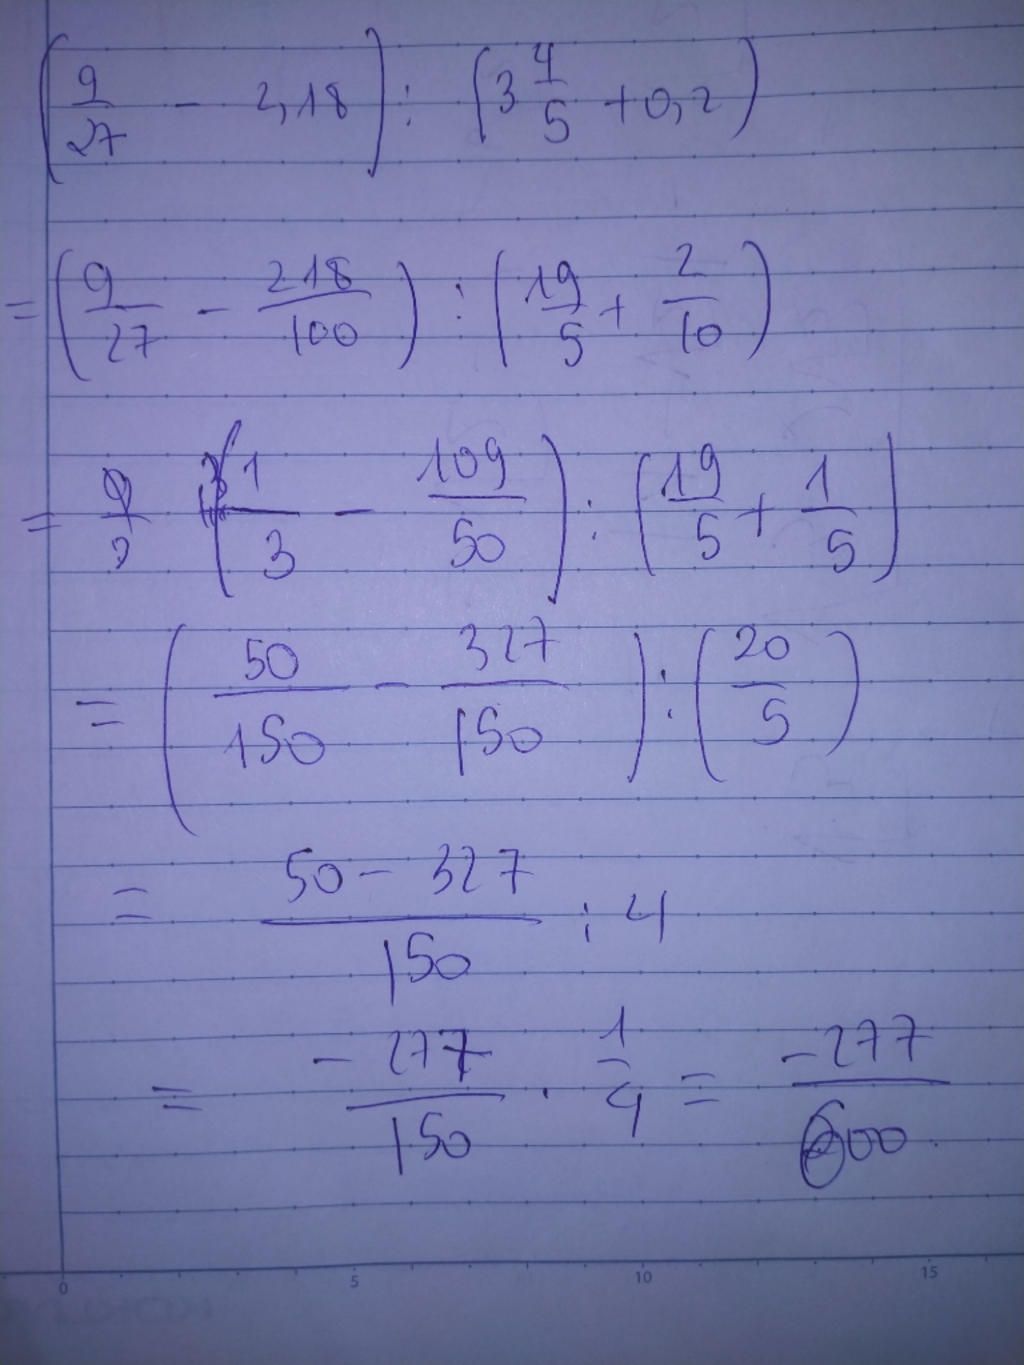 (9/27 - 2,18) : (3 4/5 + 0,2)
= (9/27 - 218/100) : (19/5 + 2/10)
= (1/3 - 109/50) : (19/5 + 1/5)
= (50/150 - 327/150) : (20/5)
= (50 - 327)/150 : 4
= -277/150 · 1/4 = -277/600
0 5 10 15